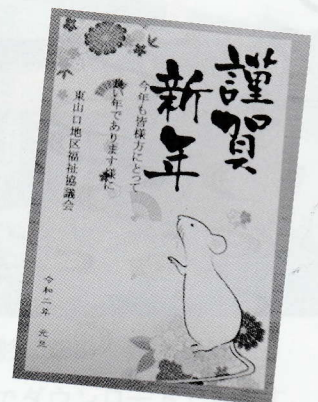 謹賀
新年
今年も皆様方にとって
良い年であります様に
東山口地区福祉協議会
令和二年 元旦